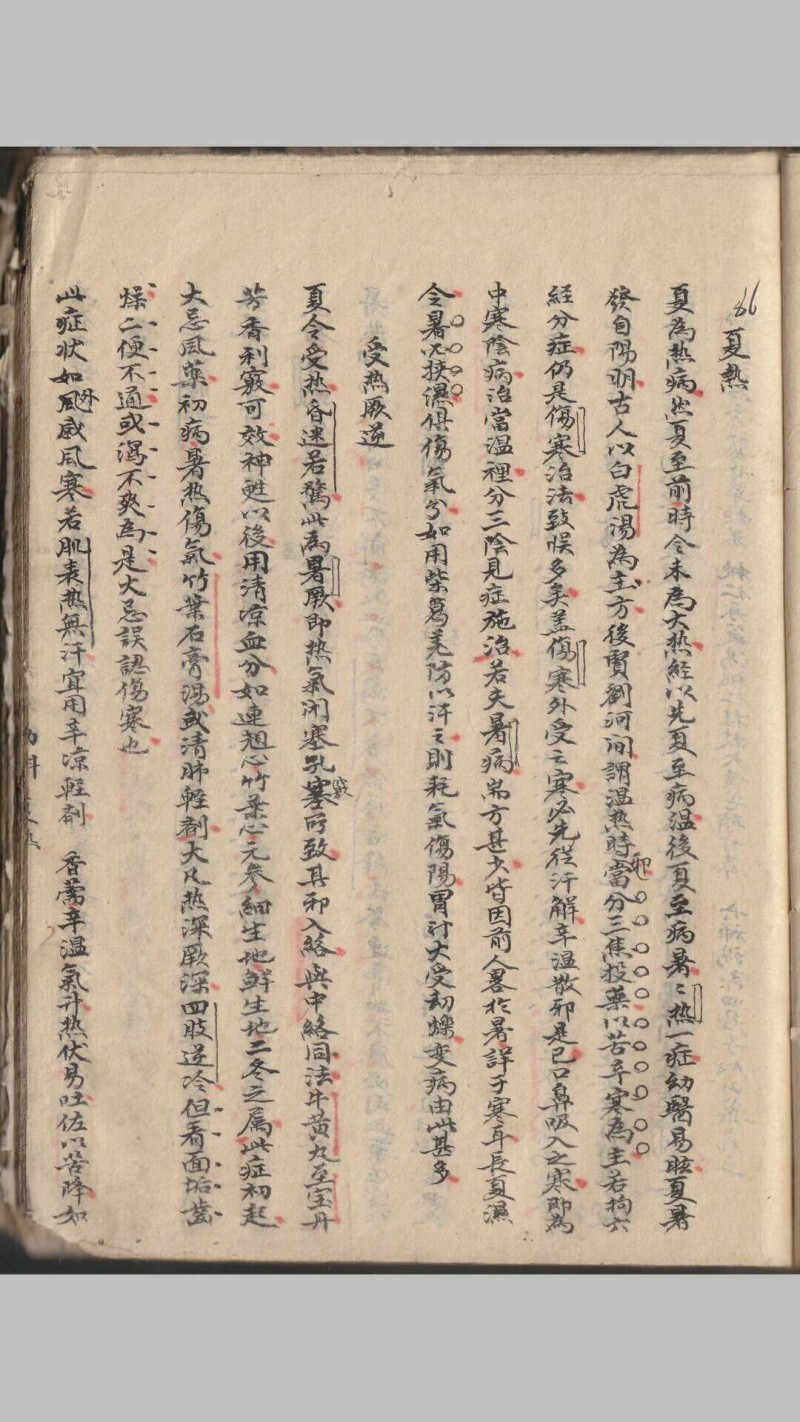 86
夏熱
夏為热病然夏至前時令未為大热経以先夏至病温後夏至病暑〻热一症幼醫易眩夏暑
發自陽明古人以白虎湯為主方後賢劉河间謂温热時邪當分三焦投薬以苦辛寒為主若拘六
經分症仍是傷寒治法致悮多矣盖傷寒外受之寒必先従汗解辛温散邪是已口鼻吸入之寒即為
中寒陰病治當温裡分三陰見症施治若夫暑病耑方甚少皆因前人畧於暑詳于寒耳長夏濕
令暑必挾濕俱傷氣分如用柴葛羌防以汗之則耗氣傷陽胃汁大受劫爍变病由此甚多
受热厥逆
夏令受热昏迷若驚此為暑厥即热氣闭塞孔竅所致其邪入絡與中絡同法牛黄丸至宝丹
芳香利竅可效神甦以後用清凉血分如連翹心竹葉心元参細生地鮮生地二冬之属此症初起
大忌風藥初病暑热傷氣竹葉石膏湯或清肺輕劑大凡热深厥深四肢逆冷但看面垢齒
燥二便不通或瀉不爽為是大忌誤認傷寒也
此症状如外感風寒若肌表热無汗宜用辛凉軽劑 香薷辛温氣升热伏易吐佐以苦降如